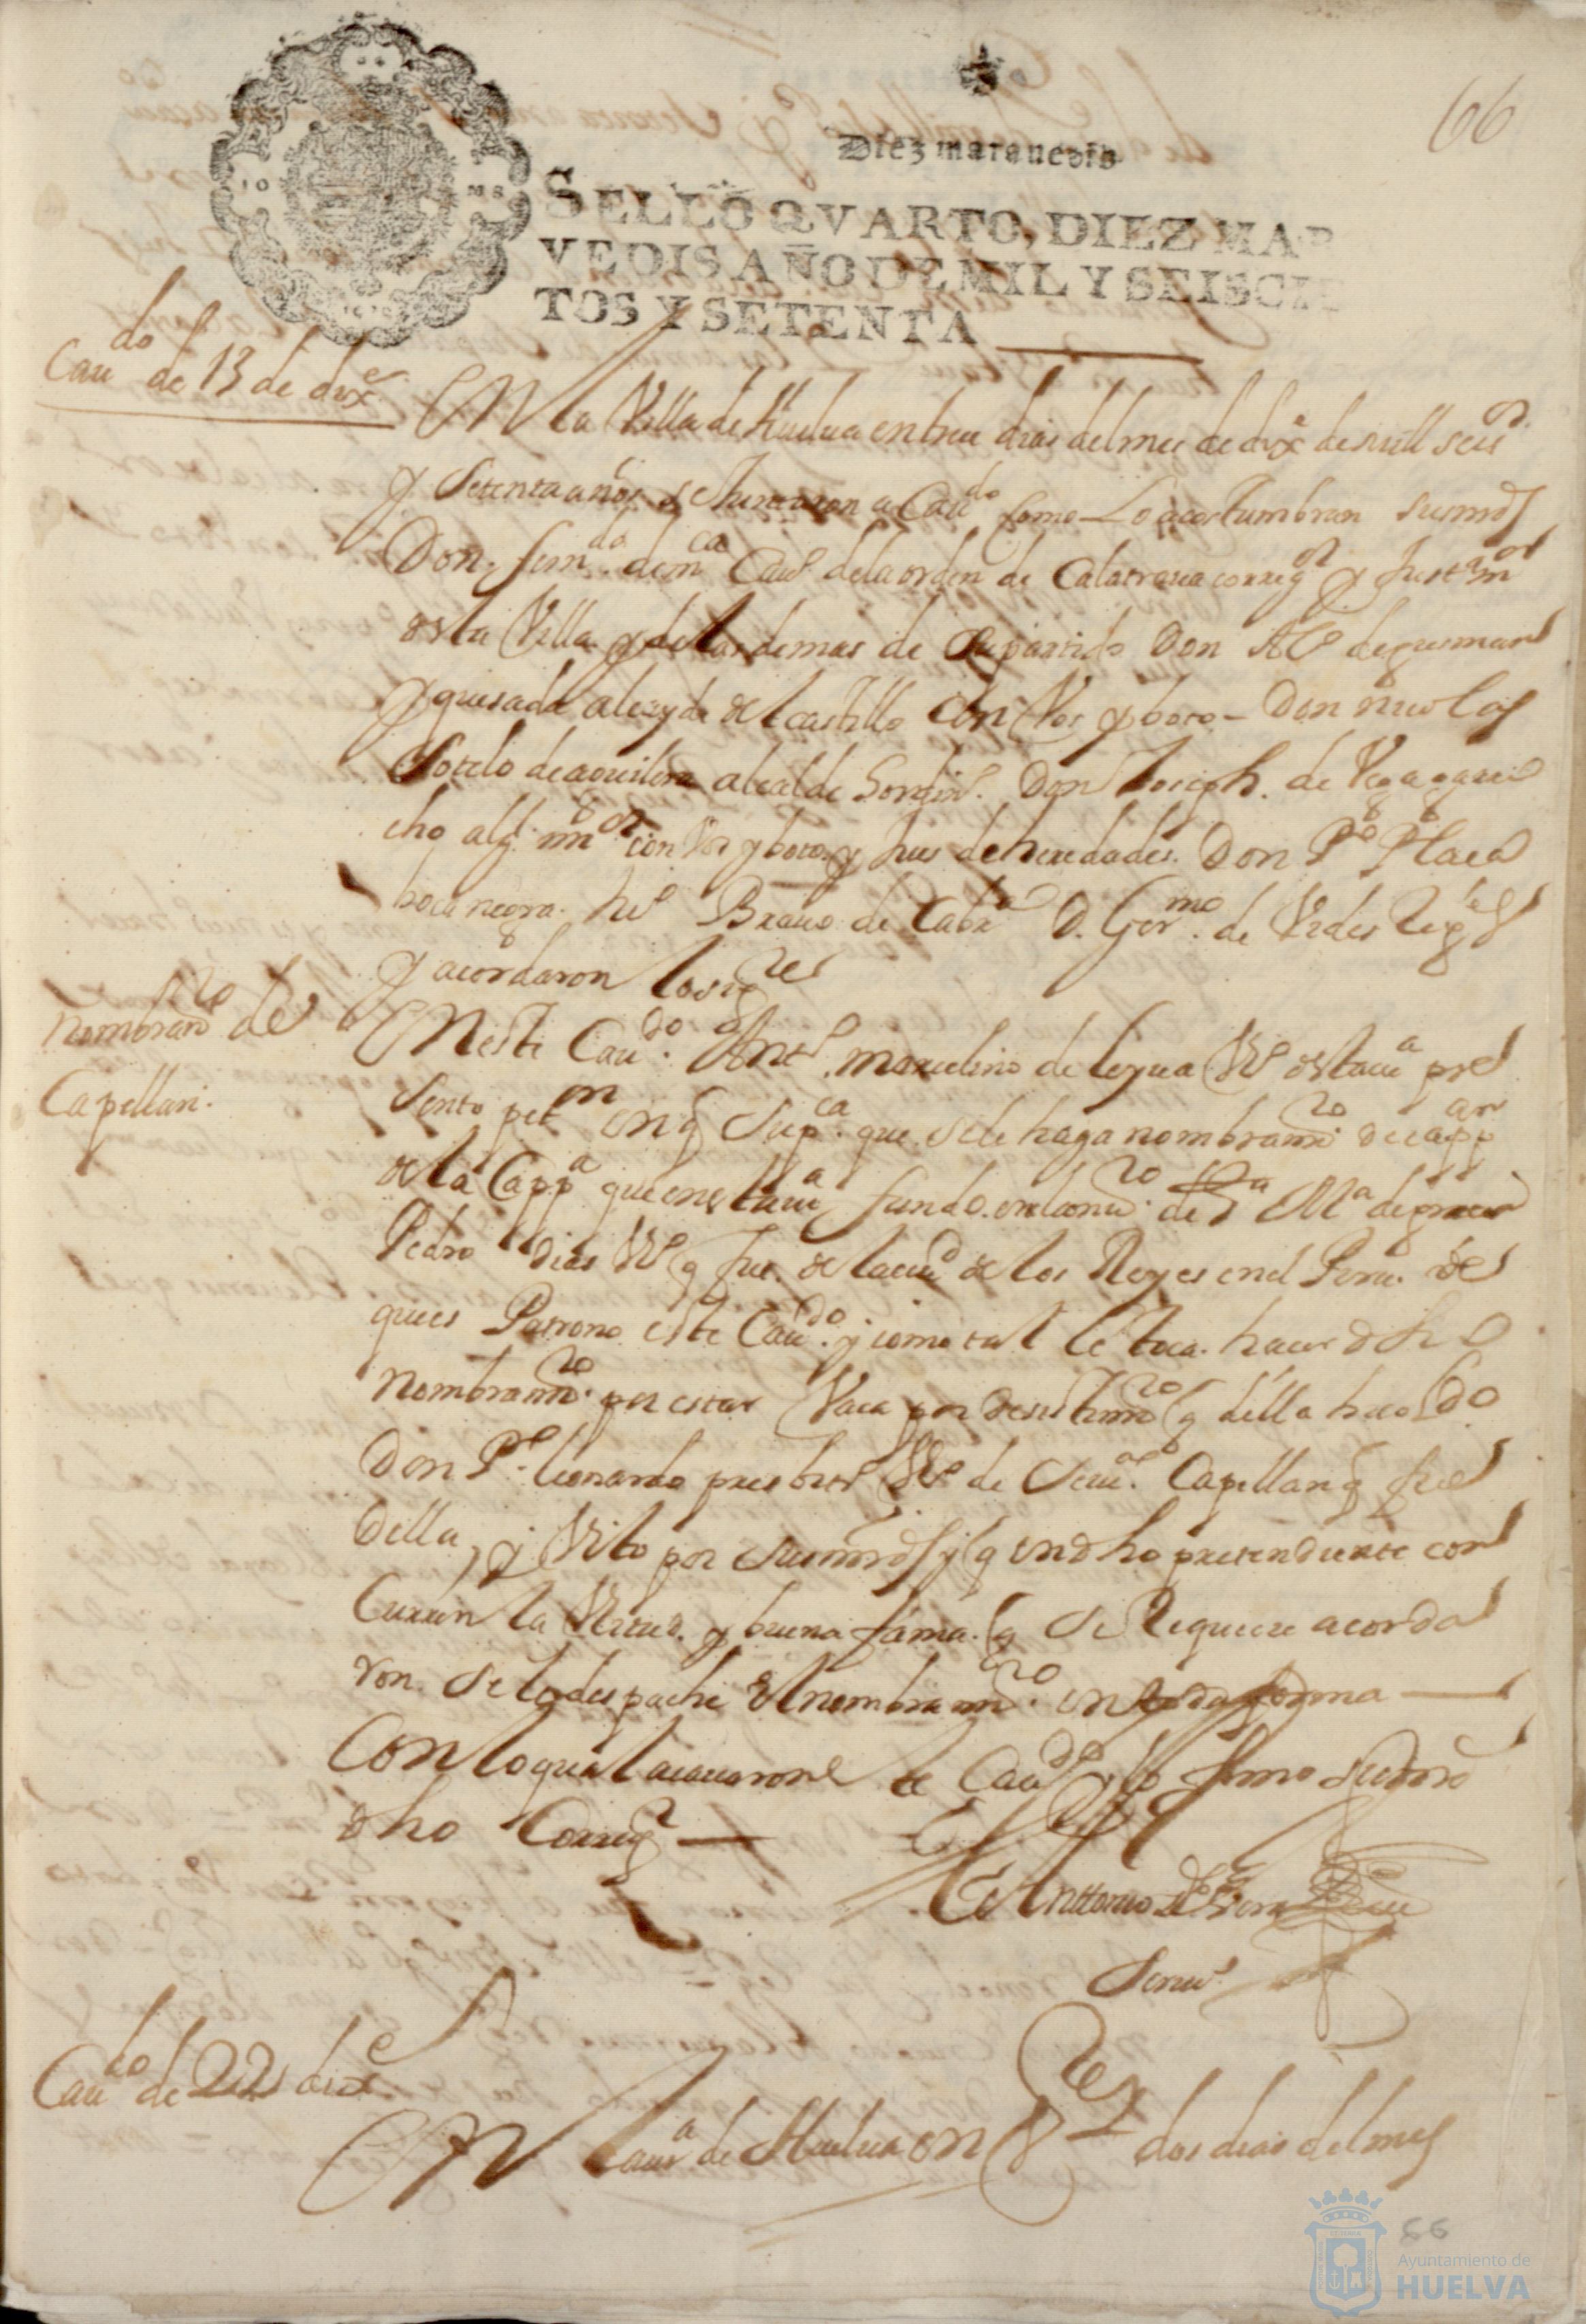 66
Diez marauedis
SELLO QVARTO, DIEZ MAR
VEDIS AÑO DE MIL Y SEISCIE
TOS Y SETENTA
Cau.do de 13 de dixe
EN la Villa de Huelua en trece dias del mes de dixe de mill seis
y setenta años se Juntaron a Cau.do Como Lo acostumbran sus mds
Don fern.do de Cau.o de la orden de Calatraua correg.or y Just.a m.or
desta Villa y de las demas de su partido Don Al.o de gusman
y quesada alcayde del castillo con Vos y boto - Don nicolas
Sotelo de aguilera alcalde hordin.o Don Joseph de Vega
cho alg. m.or con Vos y boto y Jues de heredades. Don P.o Plaça
bocanegra. Brauo de Cabr.a D. Ger.mo de Vides Reg.es
y acordaron lo sig.te
Nombram.to de
Capellan.
EN este Cau.do Ant.o marcelino de leyua V.o desta uª pre
sento pet.on en q sup.ca que se le haga nombram.to de capp.an
de la Capp.a que en esta uª fundo en el conu.to de S.a M.a de gracia
Pedro dias V.o q fue de la ciud de los Reyes en el Peru de
que es Patrono este Cau.do y como tal le toca hacer dho
nombram.to por estar Vaca por desistim.to q della hiço
Don P.o leonardo presbit.o V.o de Seuª Capellan q fue
della, y Visto por sus mrds y q en dho pretendiente con
Curren la Virtud y buena fama q se Requiere acorda
ron se le despache el nombram.to en toda forma
Con lo qual acauaron el Cau.do y lo firmo su md
dho Correg.or
Antonio de
Scriu.o
Cau.do de 22 dixe
EN la uª de Huelua en Veinte y dos dias del mes
66
Ayuntamiento de
HUELVA